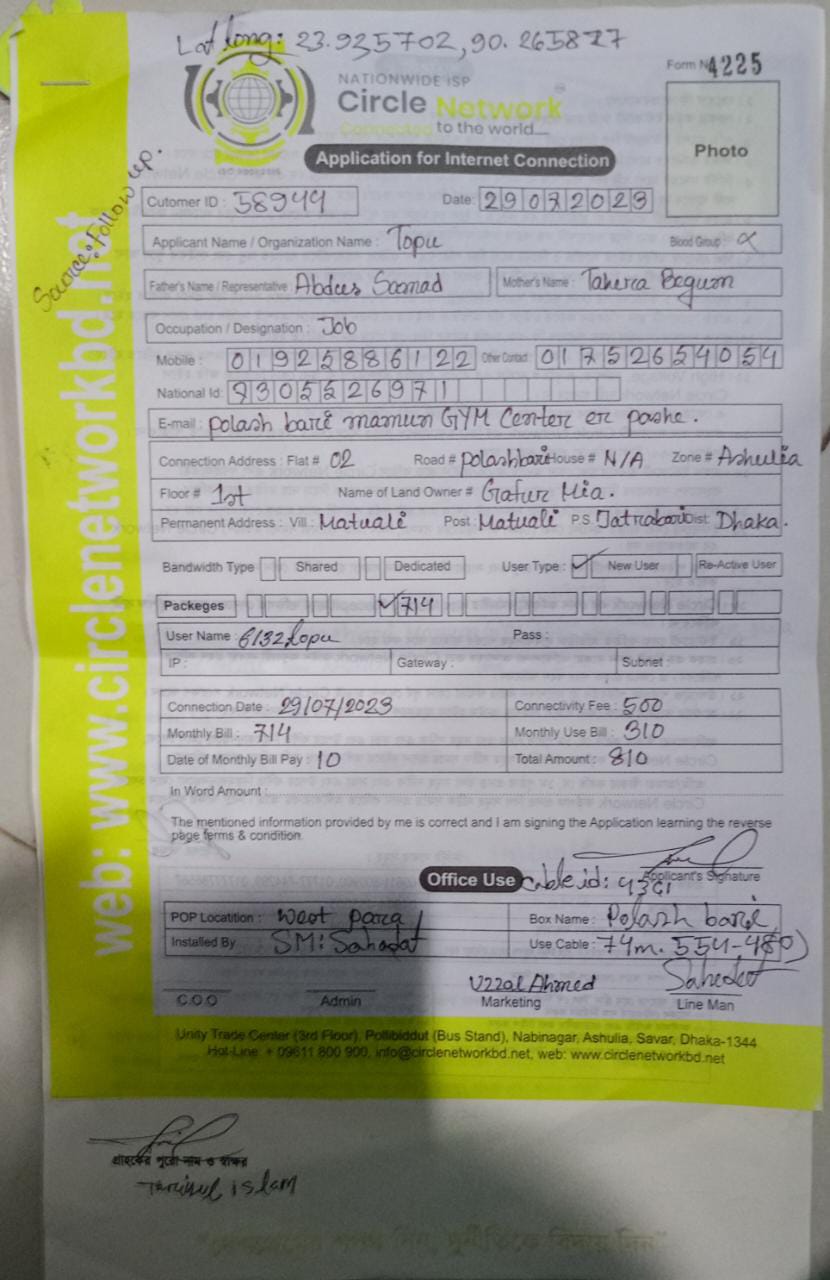 Lat long: 23.935702, 90.265877
Form N 4225
NATIONWIDE ISP
Circle Network
Connected to the world....
ISO 9001:2015
Photo
Application for Internet Connection
Source: Follow up.
web: www.circlenetworkbd.net
Cutomer ID : 58949 Date: 29072023
Applicant Name / Organization Name : Topu Blood Group :
Father's Name / Representative : Abdus Samad Mother's Name : Tahera Begum
Occupation / Designation : Job
Mobile : 01925886122 Other Contact 01752654054
National Id: 9305526971
E-mail : polash bari mamun GYM Center er pashe.
Connection Address : Flat # 02 Road # polashbari House # N/A Zone # Ashulia
Floor # 1st Name of Land Owner # Gafur Mia.
Permanent Address : Vill : Matuali Post : Matuali P.S. Jatrabari Dist: Dhaka.
Bandwidth Type Shared Dedicated User Type : ✓ New User Re-Active User
Packeges ✓ 714
User Name : 6132 Pass :
IP : Gateway : Subnet :
Connection Date : 29/07/2023 Connectivity Fee : 500
Monthly Bill : 714 Monthly Use Bill : 310
Date of Monthly Bill Pay : 10 Total Amount : 810
In Word Amount :
The mentioned information provided by me is correct and I am signing the Application learning the reverse
page terms & condition.
Applicant's Signature
Office Use Cable id:
POP Locatition : West para Box Name : Polash bari
Installed By SM: Sahadat Use Cable : 74m. 554-480)
Uzzal Ahmed Sahedat
C.O.O Admin Marketing Line Man
Unity Trade Center (3rd Floor), Pollibiddut (Bus Stand), Nabinagar, Ashulia, Savar, Dhaka-1344
Hot-Line: + 09611 800 900, info@circlenetworkbd.net, web: www.circlenetworkbd.net
গ্রাহকের পুরো নাম ও স্বাক্ষর
islam